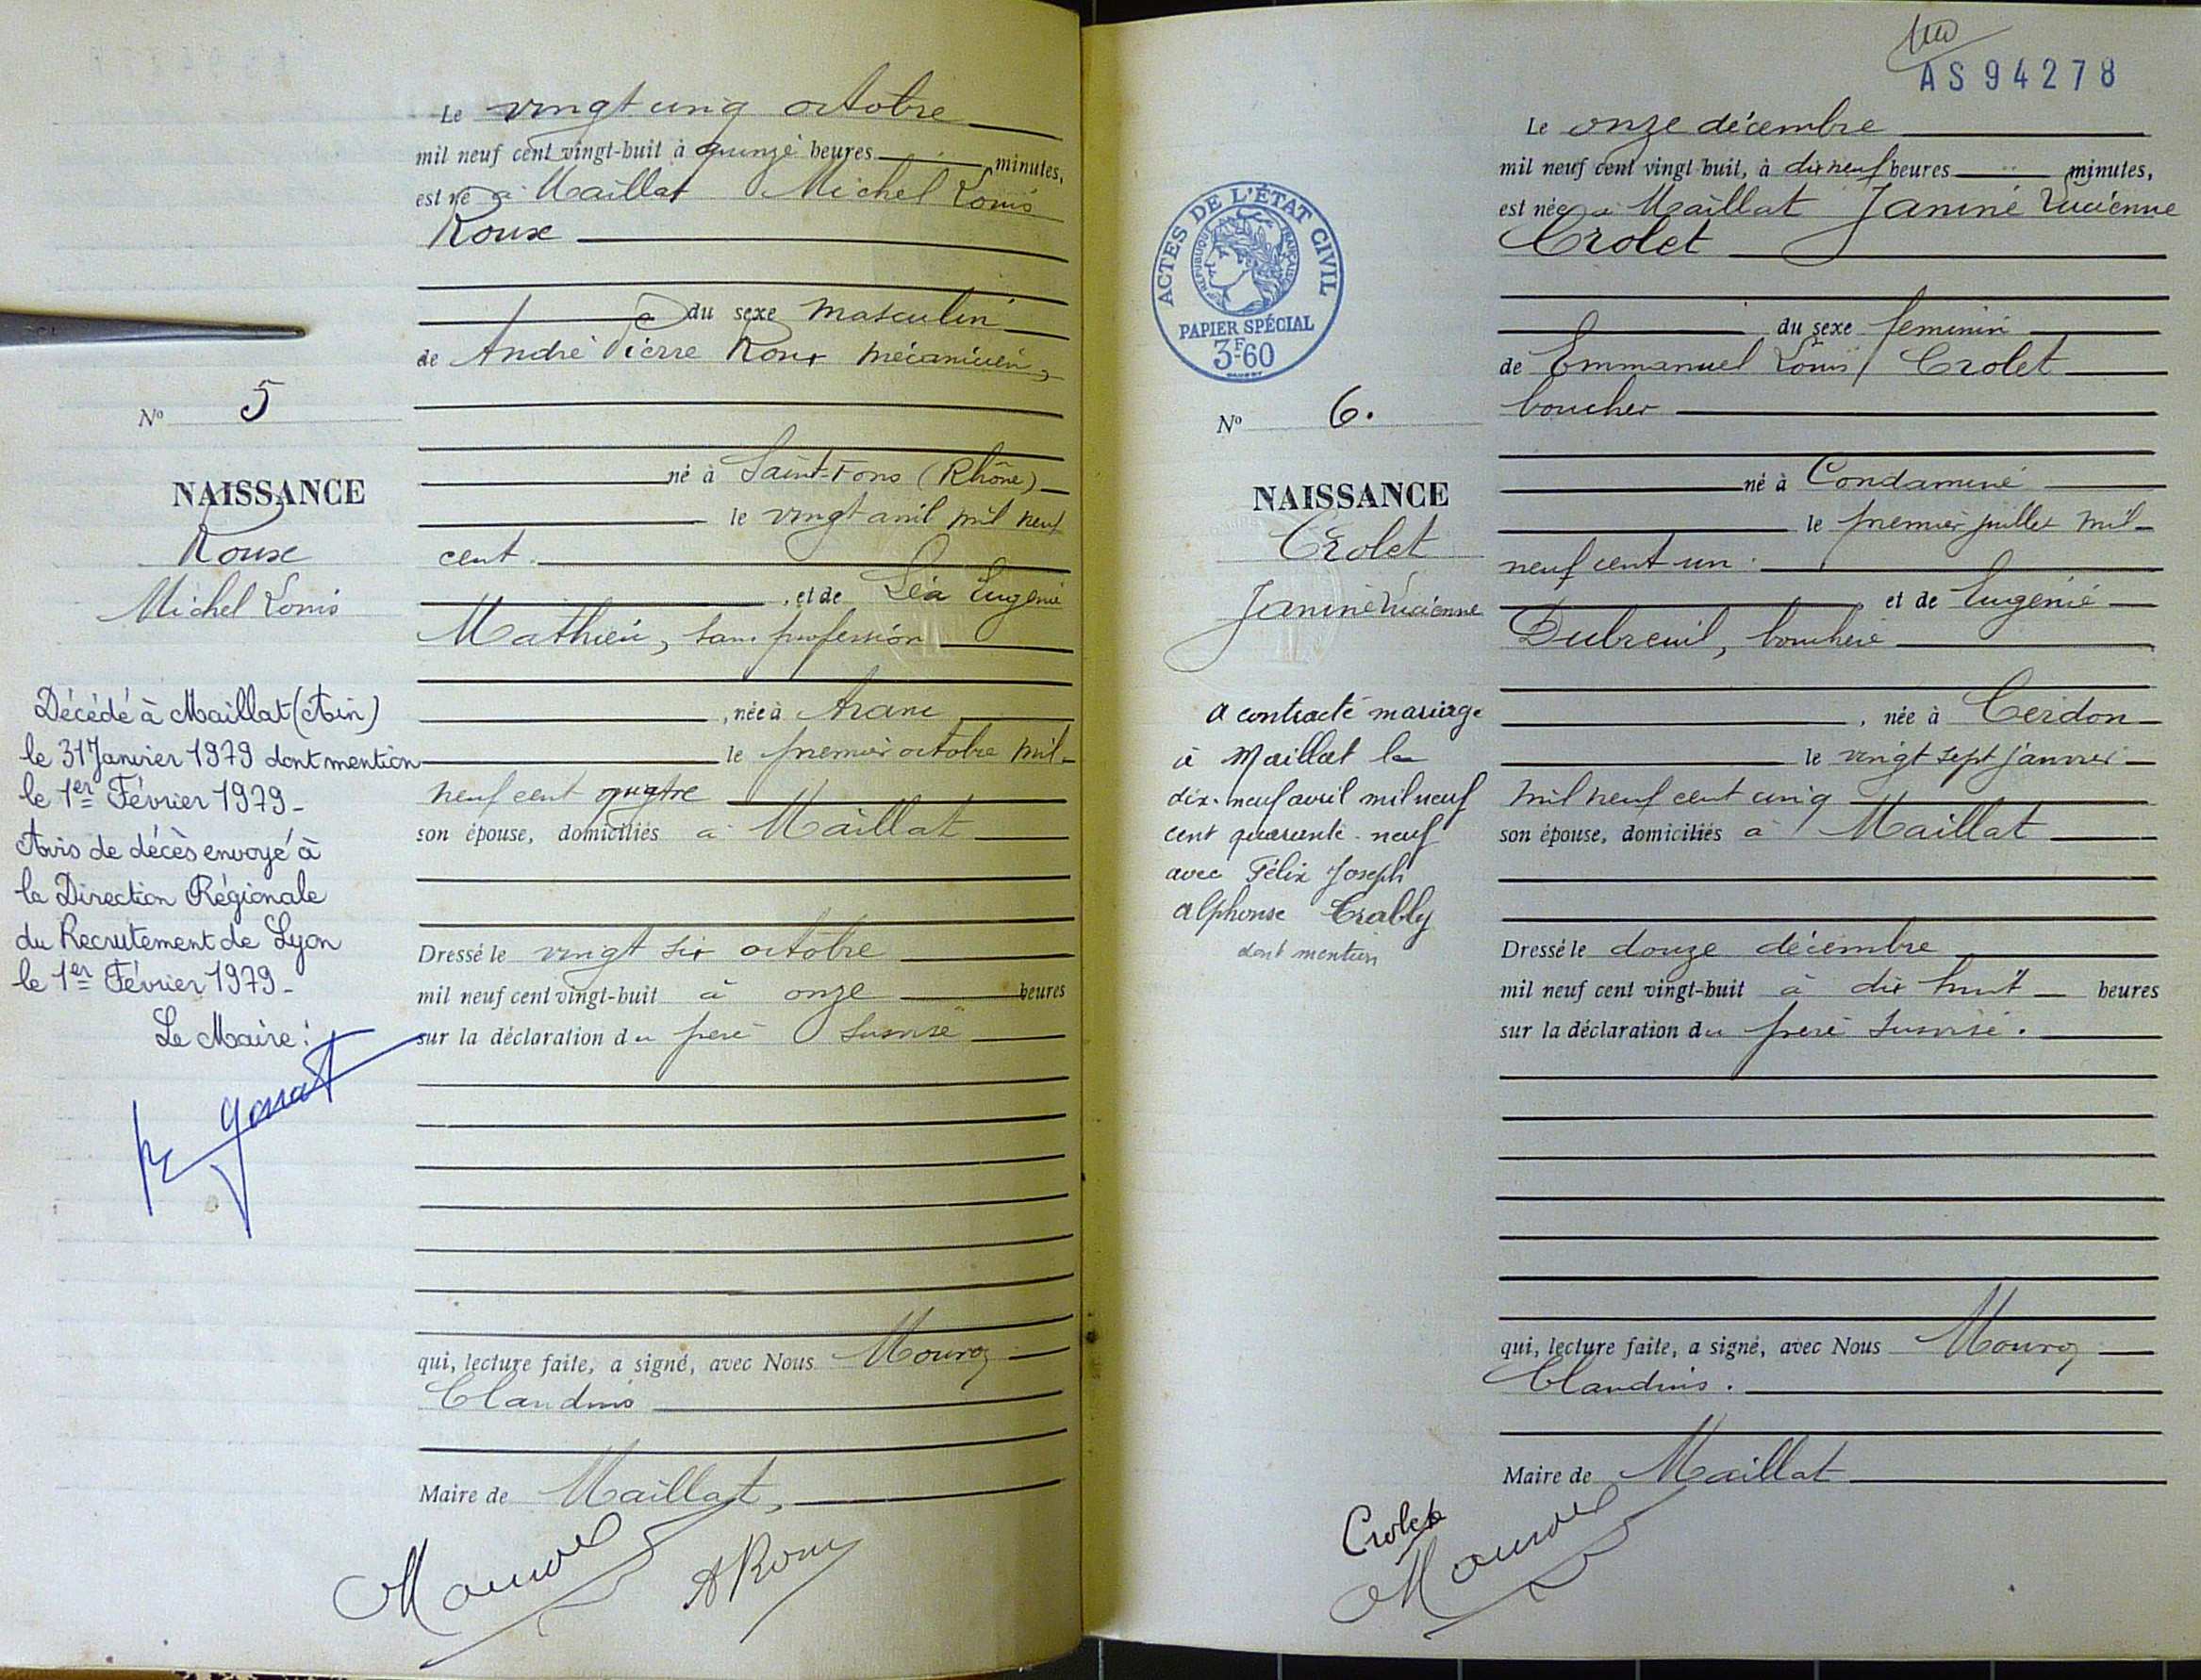 Le vingt cinq octobre
mil neuf cent vingt-huit à quinze heures minutes,
est né à Maillat Michel Louis
Roux
du sexe masculin
de André Pierre Roux mécanicien,
né à Saint-Fons (Rhône)
le vingt avril mil neuf
cent.
, et de Léa Eugénie
Mathieu, sans profession
, née à Aranc
le premier octobre mil
neuf cent quatre
son épouse, domiciliés à Maillat
Dressé le vingt six octobre
mil neuf cent vingt-huit à onze heures
sur la déclaration du père susvisé
qui, lecture faite, a signé, avec Nous
Claudius
Maire de Maillat,
A Roux
No 5
NAISSANCE
Roux
Michel Louis
Décédé à Maillat (Ain)
le 31 Janvier 1979 dont mention
le 1er Février 1979-
Avis de décès envoyé à
la Direction Régionale
du Recrutement de Lyon
le 1er Février 1979-
Le Maire :
AS94278
Le onze décembre
mil neuf cent vingt-huit, à dix neuf heures minutes,
est née à Maillat Janine Lucienne
Crolet
du sexe féminin
de Emmanuel Louis Crolet
boucher
né à Condamine
le premier juillet mil
neuf cent un.
et de Eugénie
Dubreuil, bouchère
, née à Cerdon
le vingt sept janvier
mil neuf cent cinq
son épouse, domiciliés à Maillat
Dressé le douze décembre
mil neuf cent vingt-huit à dix huit heures
sur la déclaration du père susvisé.
qui, lecture faite, a signé, avec Nous
Claudius.
Maire de Maillat
Crolet
ACTES DE L'ÉTAT CIVIL
RÉPUBLIQUE FRANÇAISE
PAPIER SPÉCIAL
3F60
No 6.
NAISSANCE
Crolet
Janine Lucienne
a contracté mariage
à Maillat le
dix-neuf avril mil neuf
cent quarante-neuf
avec Félix Joseph
Alphonse
dont mention